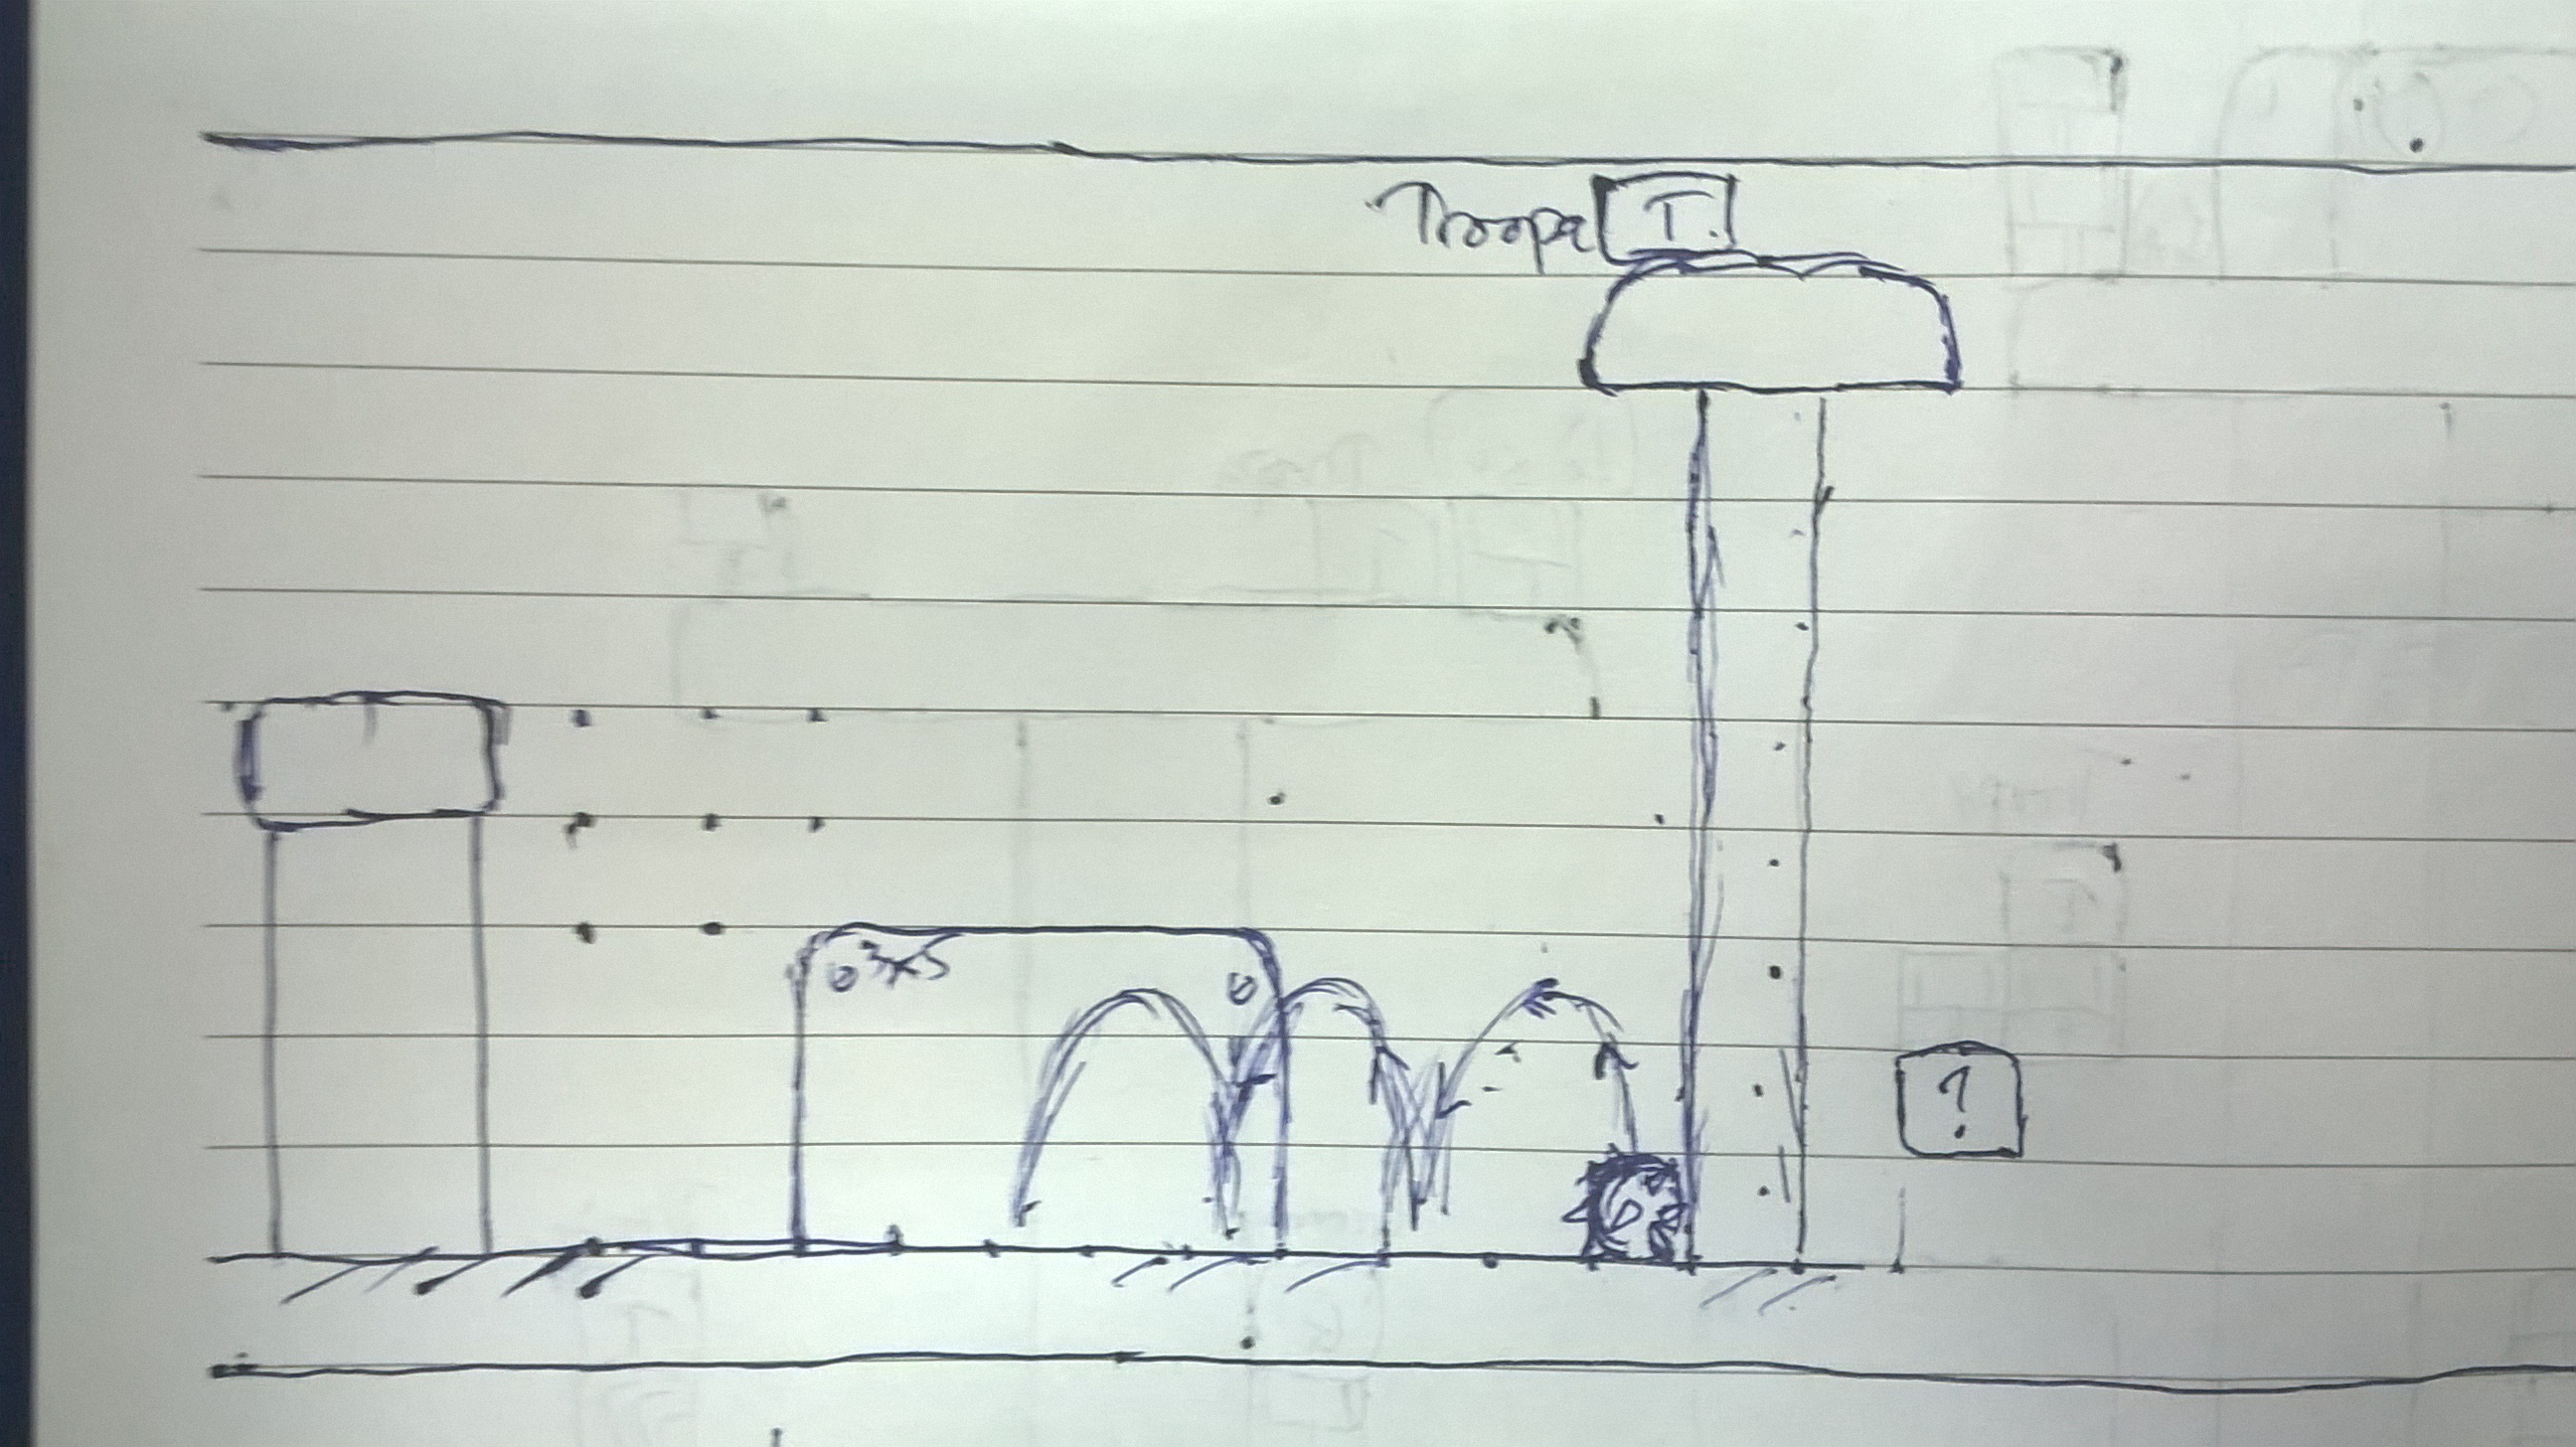 Troopa T.
3x5
?